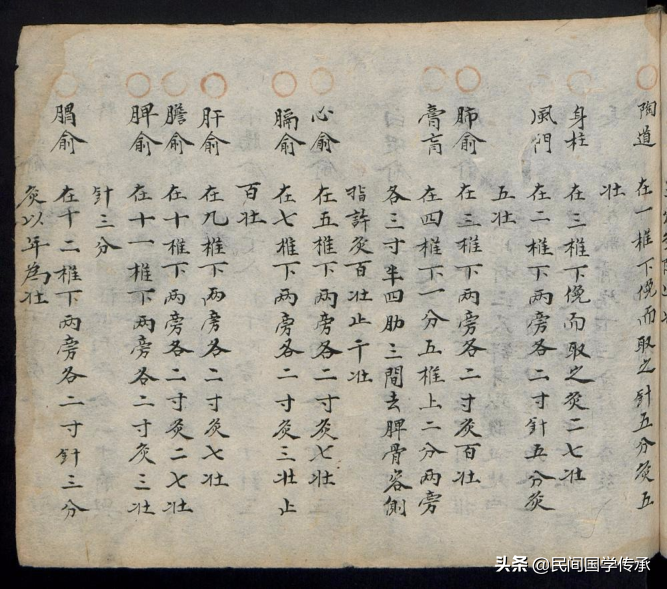 陶道 在一椎下俛而取之針五分灸五
壯
身柱 在三椎下俛而取之灸二七壯
風門 在二椎下两旁各二寸針五分灸
五壯
肺俞 在三椎下两旁各二寸灸百壯
膏肓 在四椎下一分五椎上二分两旁
各三寸半四肋三間去脾骨容側
指許灸百壯止千壯
心俞 在五椎下两旁各二寸灸七壯
膈俞 在七椎下两旁各二寸灸三壯止
百壯
肝俞 在九椎下两旁各二寸灸七壯
膽俞 在十椎下两旁各二寸灸二七壯
脾俞 在十一椎下两旁各二寸灸三壯
針三分
俞 在十二椎下两旁各二寸針三分
灸以年為壯
头条 @民间国学传承